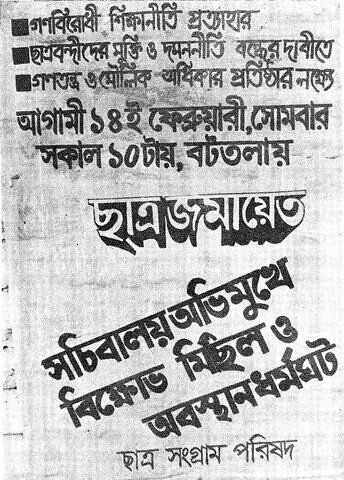 গণবিরোধী শিক্ষানীতি প্রত্যাহার
ছাত্রবন্দীদের মুক্তি ও দমননীতি বন্ধের দাবীতে
গণতন্ত্র ও মৌলিক অধিকার প্রতিষ্ঠার লক্ষ্যে
আগামী ১৪ই ফেব্রুয়ারী, সোমবার
সকাল ১০টায়, বটতলায়
ছাত্রজমায়েত
সচিবালয় অভিমুখে
বিক্ষোভ মিছিল ও
অবস্থান ধর্মঘট
ছাত্র সংগ্রাম পরিষদ